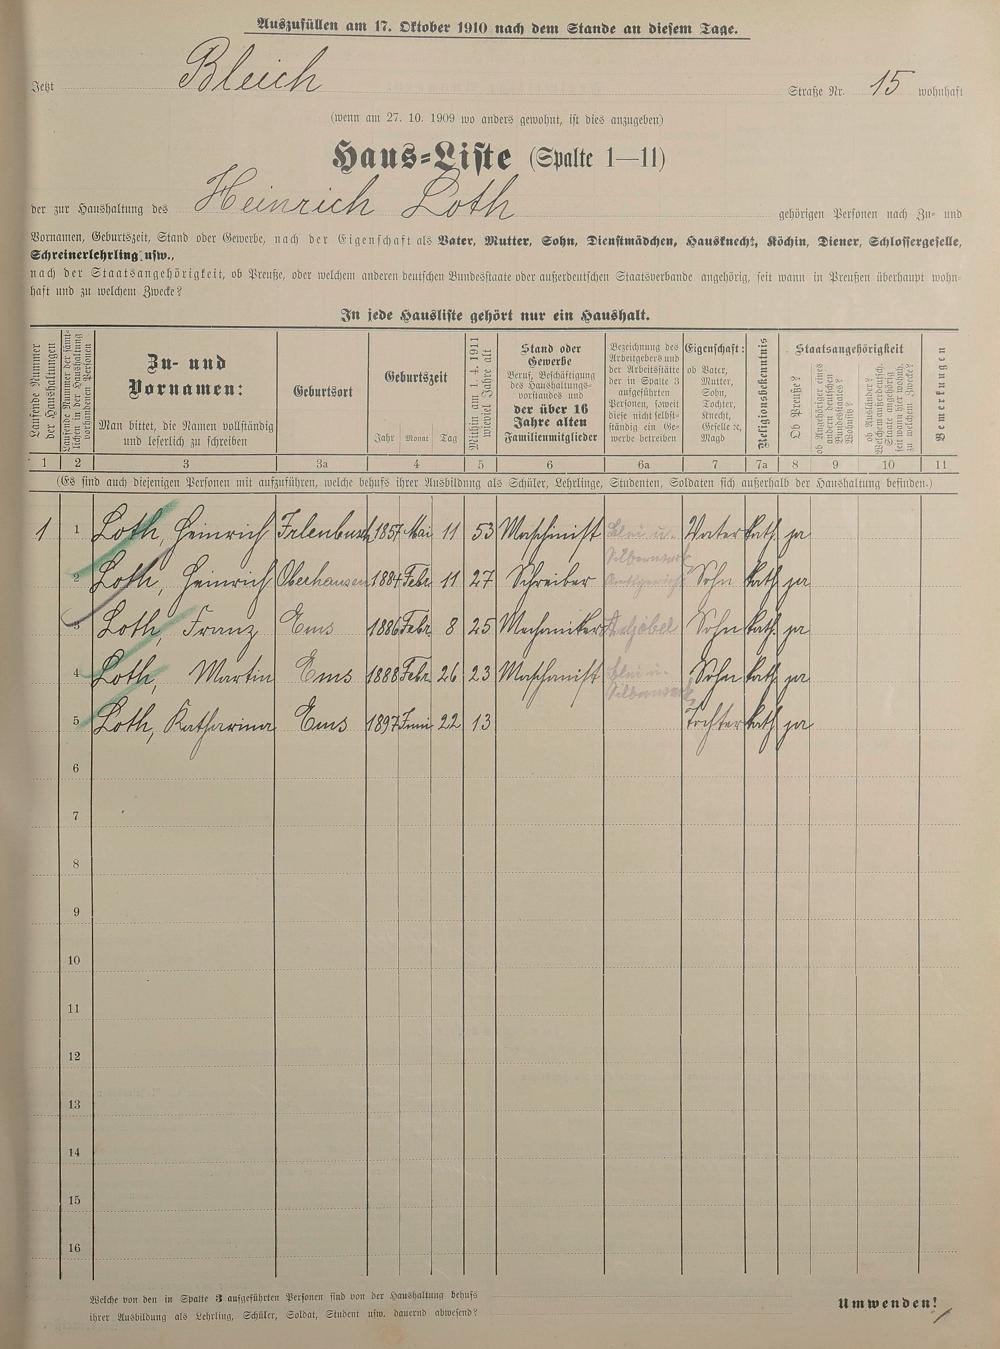 Auszufüllen am 17. Oktober 1910 nach dem Stande an diesem Tage.
Jetzt Bleich Straße Nr. 15 wohnhaft
(wenn am 27. 10. 1909 wo anders gewohnt, ist dies anzugeben)
Haus-Liste (Spalte 1—11)
der zur Haushaltung des Heinrich Loth gehörigen Personen nach Zu- und
Vornamen, Geburtszeit, Stand oder Gewerbe, nach der Eigenschaft als Vater, Mutter, Sohn, Dienstmädchen, Hausknecht, Köchin, Diener, Schlossergeselle,
Schreinerlehrling usw.,
nach der Staatsangehörigkeit, ob Preuße, oder welchem anderen deutschen Bundesstaate oder außerdeutschen Staatsverbande angehörig, seit wann in Preußen überhaupt wohn-
haft und zu welchem Zwecke?
In jede Hausliste gehört nur ein Haushalt.
Laufende Nummer der Haushaltungen
Laufende Nummer der sämt-
lichen in der Haushaltung
vorhandenen Personen
Zu- und
Vornamen:
Man bittet, die Namen vollständig
und leserlich zu schreiben
Geburtsort
Geburtszeit
Jahr Monat Tag
Mithin am 1. 4. 1911
wieviel Jahre alt
Stand oder
Gewerbe
Beruf, Beschäftigung
des Haushaltungs-
vorstandes und
der über 16
Jahre alten
Familienmitglieder
Bezeichnung des
Arbeitgebers und
der Arbeitsstätte
der in Spalte 3
aufgeführten
Personen, soweit
diese nicht selbst-
ständig ein Ge-
werbe betreiben
Eigenschaft:
ob Vater,
Mutter,
Sohn,
Tochter,
Knecht,
Geselle ec,
Magd
Religionsbekenntnis
Staatsangehörigkeit
Ob Preuße?
ob Angehöriger eines
andern deutschen
Bundesstaates?
Wohnsitz?
ob Ausländer?
Welchem außerdeutsch.
Staate angehörig
seit wann hier wohnh.
zu welchem Zwecke?
Bemerkungen
1 2 3 3a 4 5 6 6a 7 7a 8 9 10 11
(Es sind auch diejenigen Personen mit aufzuführen, welche behufs ihrer Ausbildung als Schüler, Lehrlinge, Studenten, Soldaten sich außerhalb der Haushaltung befinden.)
1 1 Loth, Heinrich 1857 Mai 11 53 Maschinist Blei u. Vater kath. ja
Silberwerk
2 Loth, Heinrich Oberhausen 1884 Febr. 11 27 Schreiber Amtsgericht Sohn kath ja
3 Loth, Franz Ems 1886 Febr. 8 25 Mechaniker Sohn kath. ja
4 Loth, Martin Ems 1888 Febr. 26 23 Maschinist Blei u. Sohn kath ja
Silberwerk
5 Loth, Katharina Ems 1897 Juni 22 13 Tochter kath ja
6
7
8
9
10
11
12
13
14
15
16
Welche von den in Spalte 3 aufgeführten Personen sind von der Haushaltung behufs
ihrer Ausbildung als Lehrling, Schüler, Soldat, Student usw. dauernd abwesend?
Umwenden!